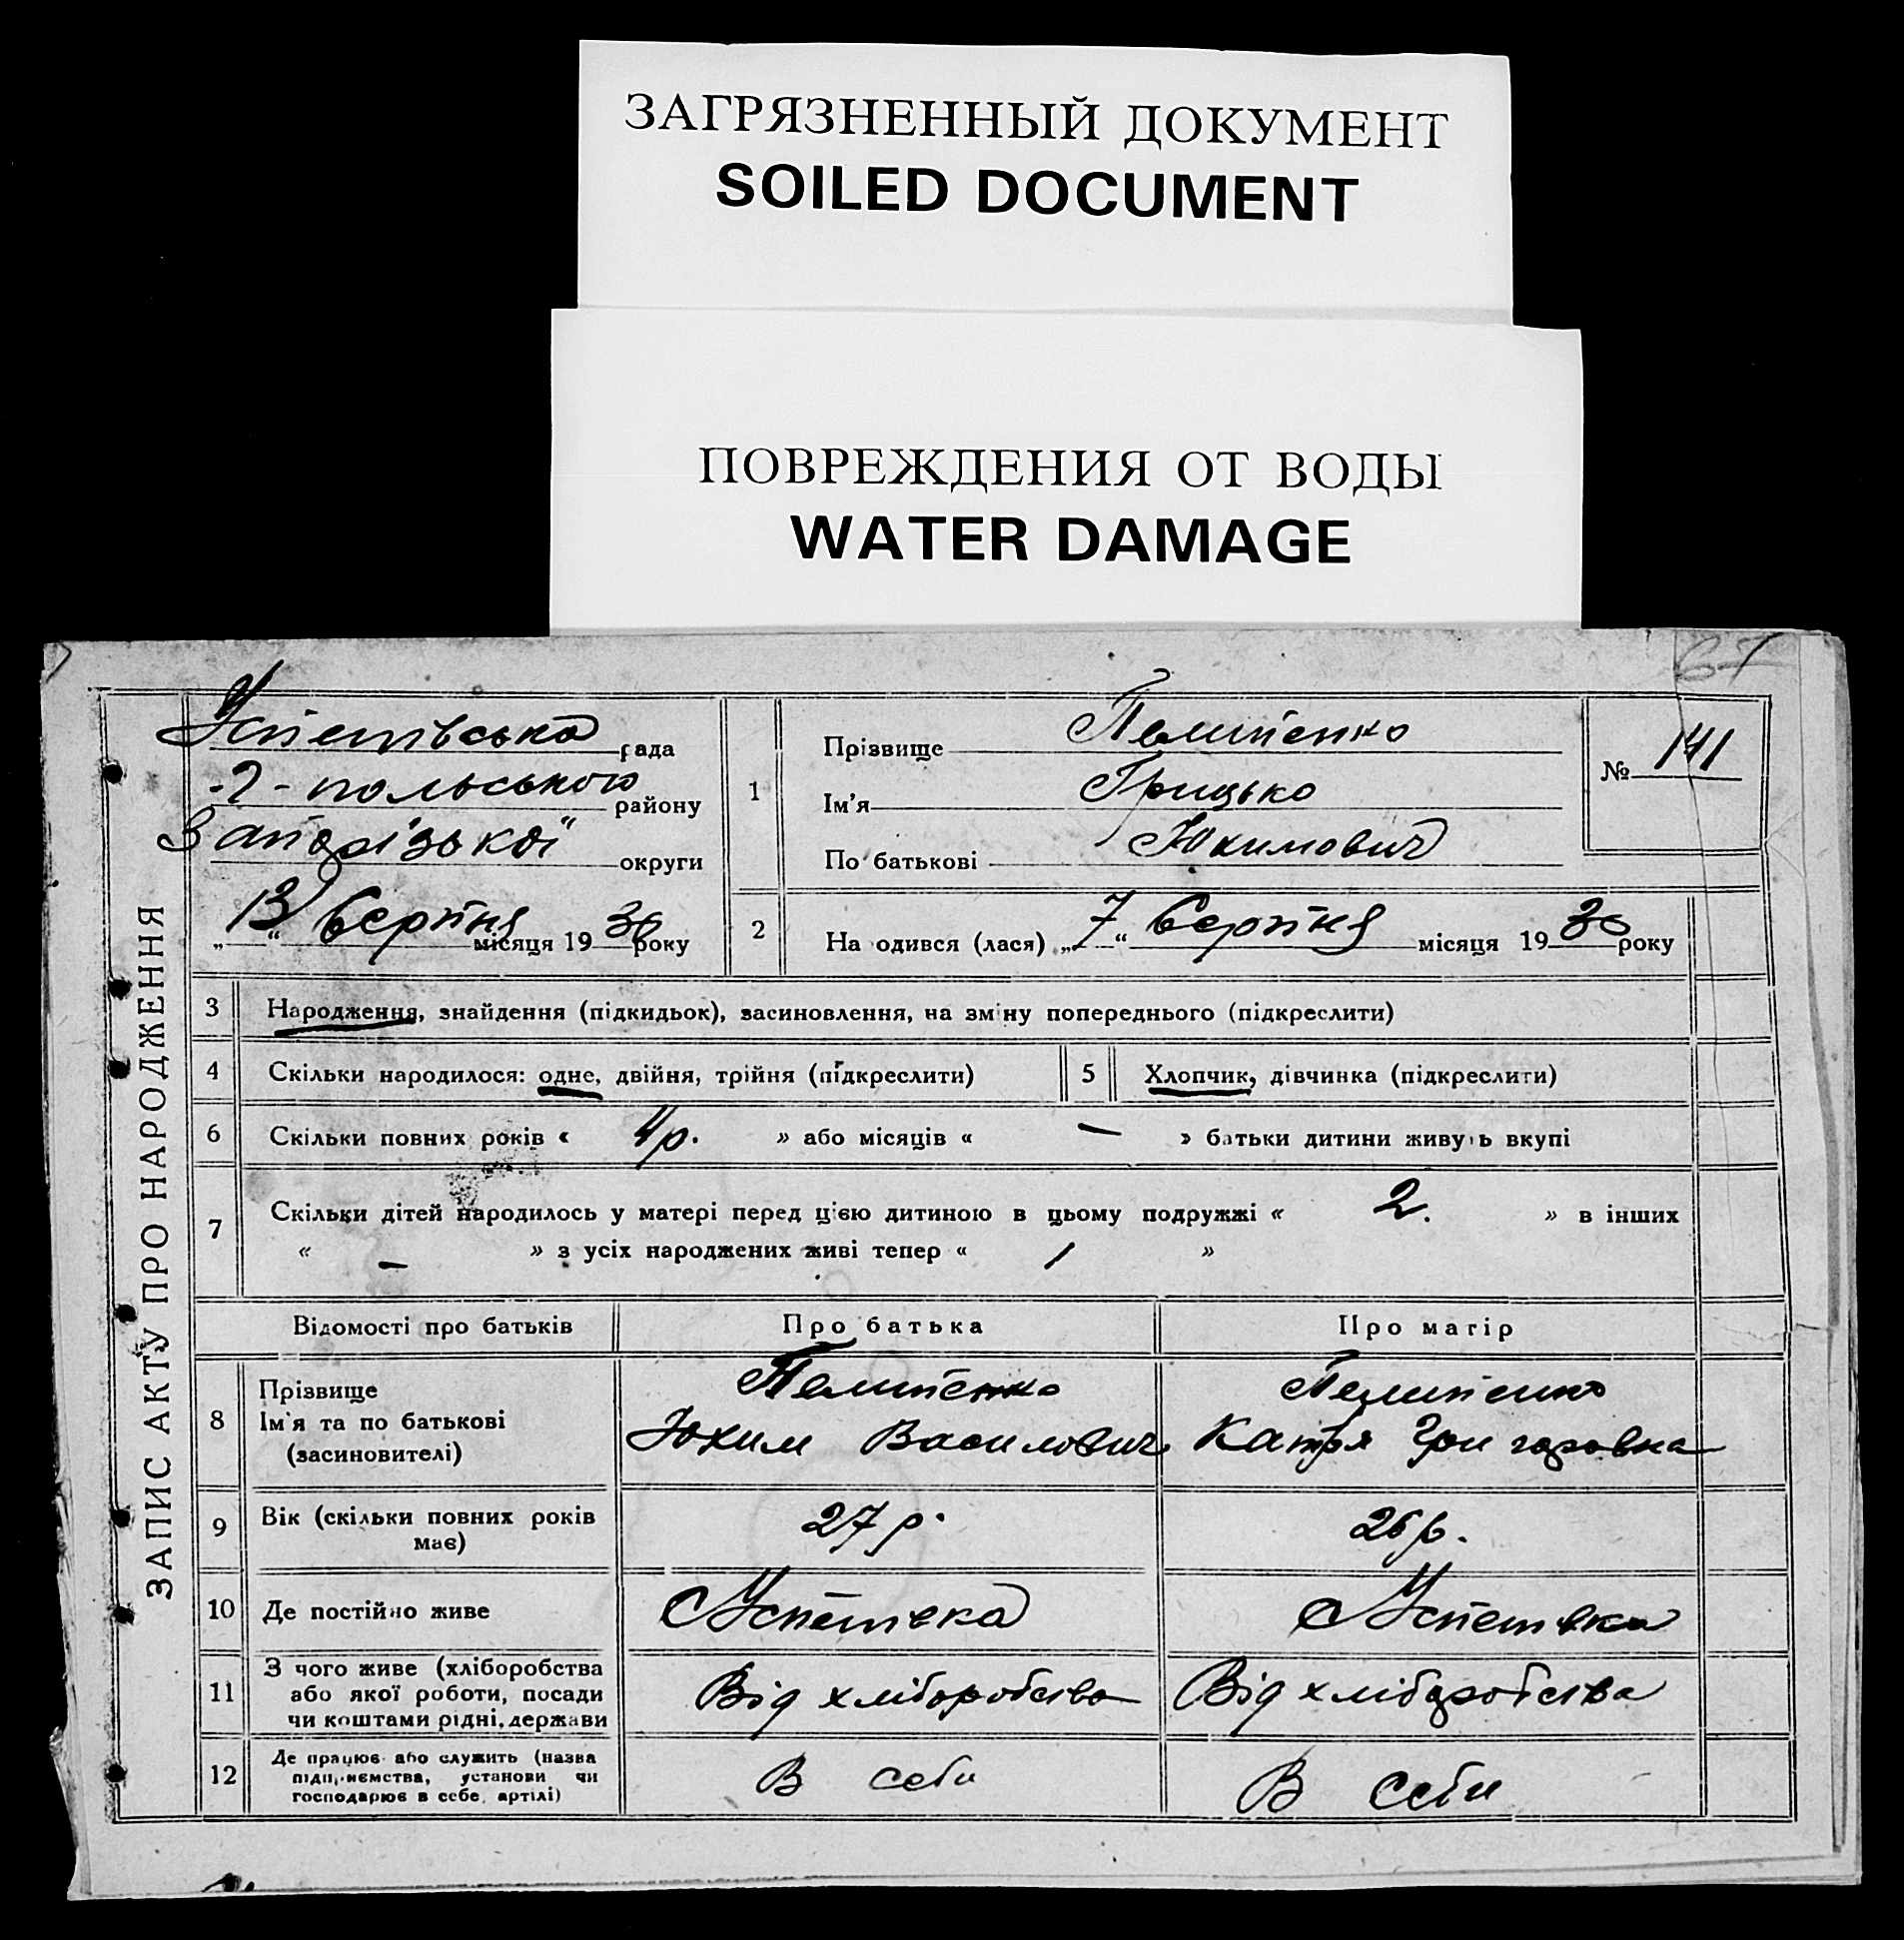 ЗАГРЯЗНЕННЫЙ ДОКУМЕНТ
SOILED DOCUMENT
ПОВРЕЖДЕНИЯ ОТ ВОДЫ
WATER DAMAGE
67
ЗАПИС АКТУ ПРО НАРОДЖЕННЯ
рада
-польського району
Запорізької округи
„13“ Серпня місяця 1930 року
1
Прізвище
Ім’я Грицько
По батькові Юхимович
№ 141
2 На одився (лася) „7“ Серпня місяця 1930 року
3 Народження, знайдення (підкидьок), засиновлення, на зміну попереднього (підкреслити)
4 Скільки народилося: одне, двійня, трійня (підкреслити)
5 Хлопчик, дівчинка (підкреслити)
6 Скільки повних років « 4р. » або місяців « — » батьки дитини живуть вкупі
7 Скільки дітей народилось у матері перед цією дитиною в цьому подружжі « 2. » в інших
« — » з усіх народжених живі тепер « 1 »
Відомості про батьків Про батька Про матір
8 Прізвище
Ім’я та по батькові Юхим Василович Катря Григоровна
(засиновителі)
9 Вік (скільки повних років має) 27 р. 26 р.
10 Де постійно живе
11 З чого живе (хліборобства
або якої роботи, посади Від хліборобства Від хліборобства
чи коштами рідні, держави
12 Де працює або служить (назва
підприємства, установи чи В себи В себи
господарює в себе, артілі)